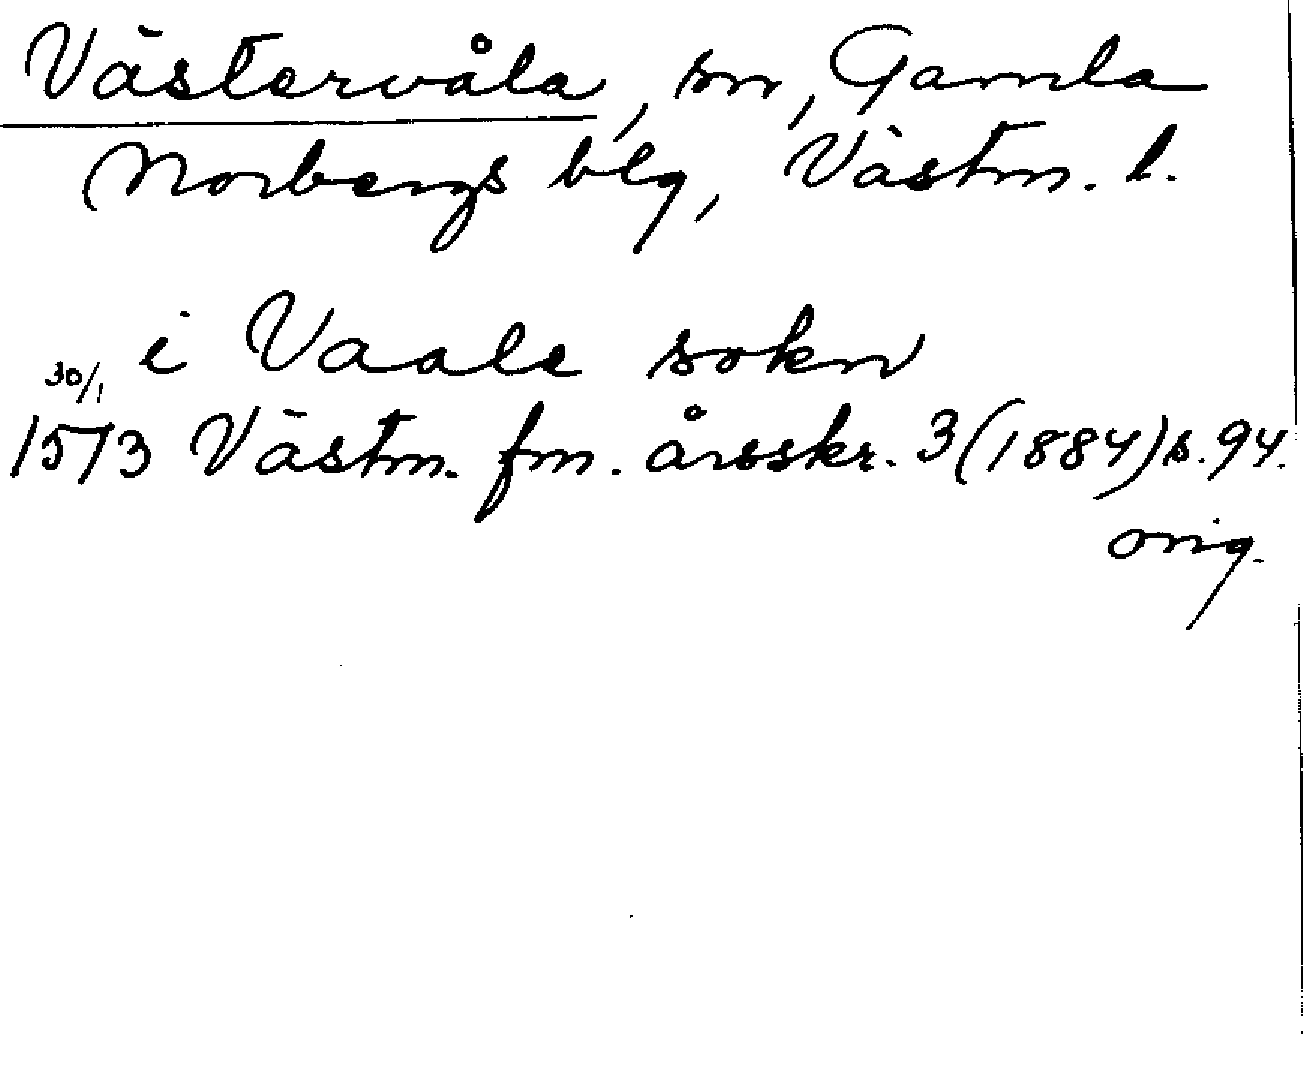 Västervåla, sn, Gamla
Norbergs blg, Västm. l.
i Vaale sokn
30/1
1573 Västm. fm. årsskr. 3 (1884) s. 94.
orig.